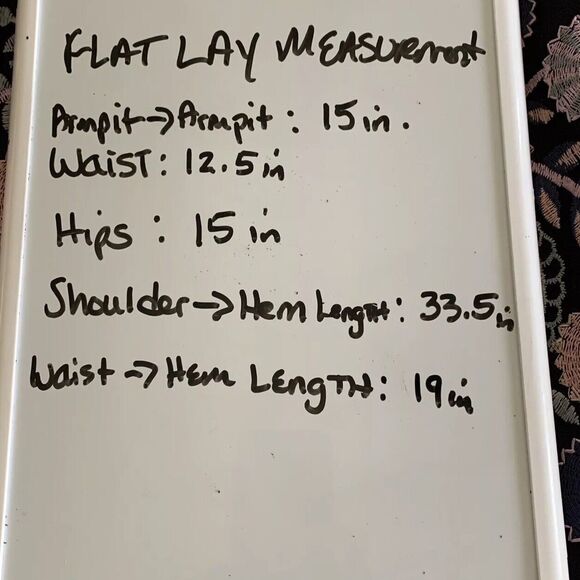 FLAT LAY MEASUREment
Armpit→Armpit: 15in.
WAIST: 12.5in
Hips: 15 in
Shoulder→Hem Length: 33.5in
Waist→Hem LENGTH: 19in